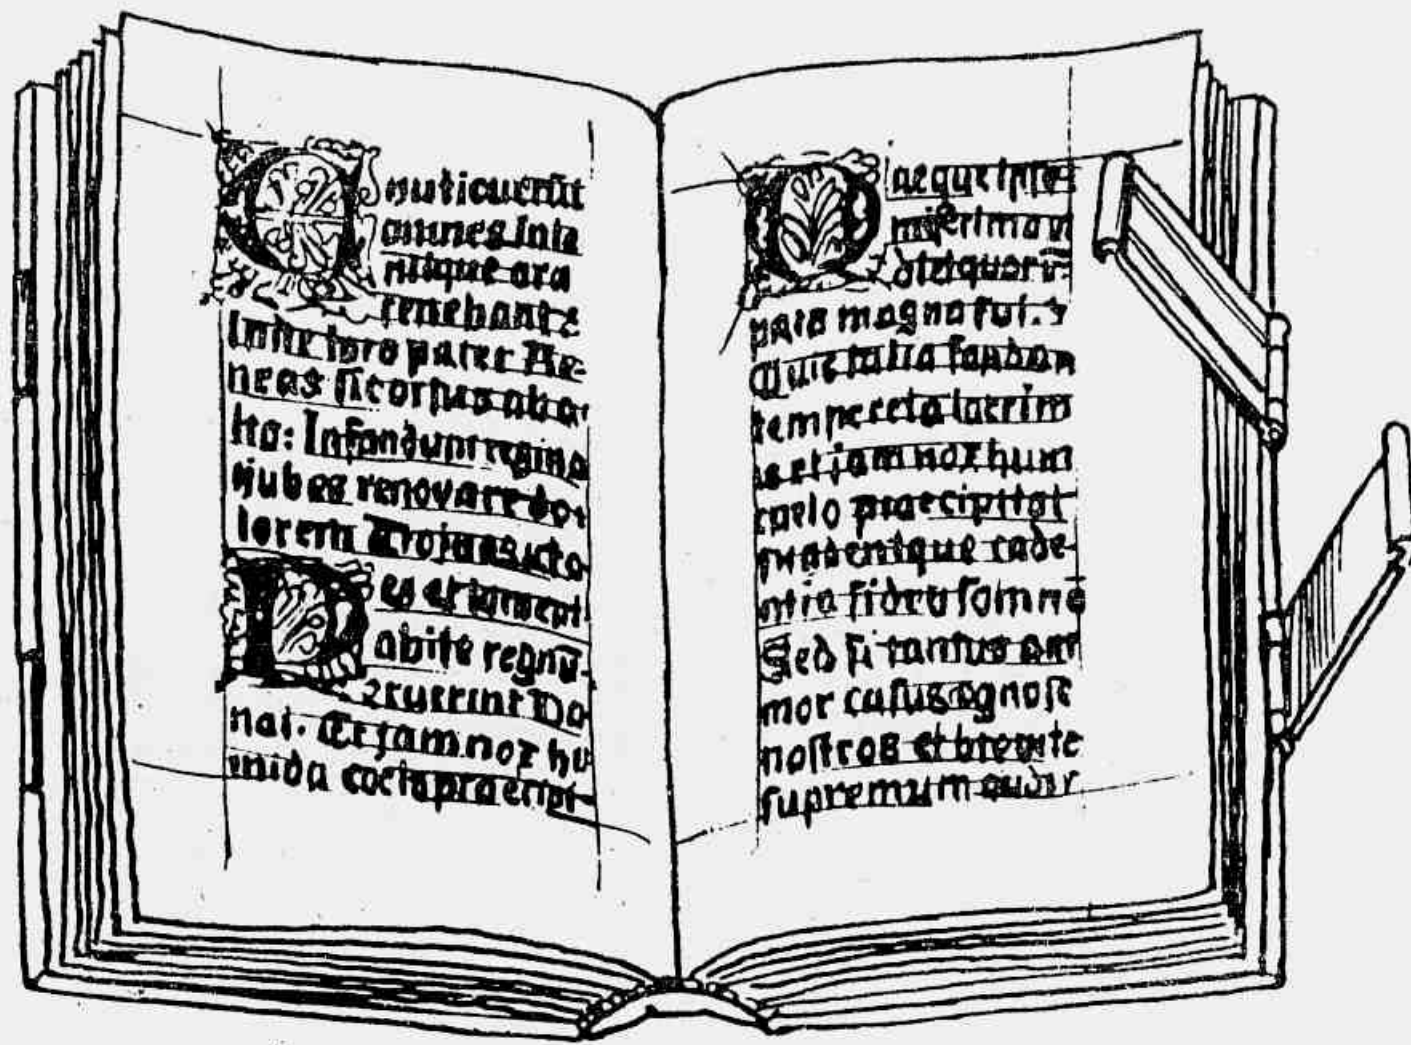 Conticuerūt
omnes inte
ntique ora
tenebant:
Inde toro pater Ae-
neas sic orsus ab a-
lto: Infandum regina
jubes renovare do-
lorem Trojanas ut o-
es et lament
abile regnū
eruerint Da
nai. Et jam nox hu
mida coelo praecipi-
Quaeque ipse
miserima vi
di et quorū
pars magna fui.
Quis talia fandan
temperet a lacrim
is et jam nox hum
caelo praecipitat
suadentque cade-
ntia sidera somnō
Sed si tantus am
mor casus cognosc
nostros et brevite
supremum audir